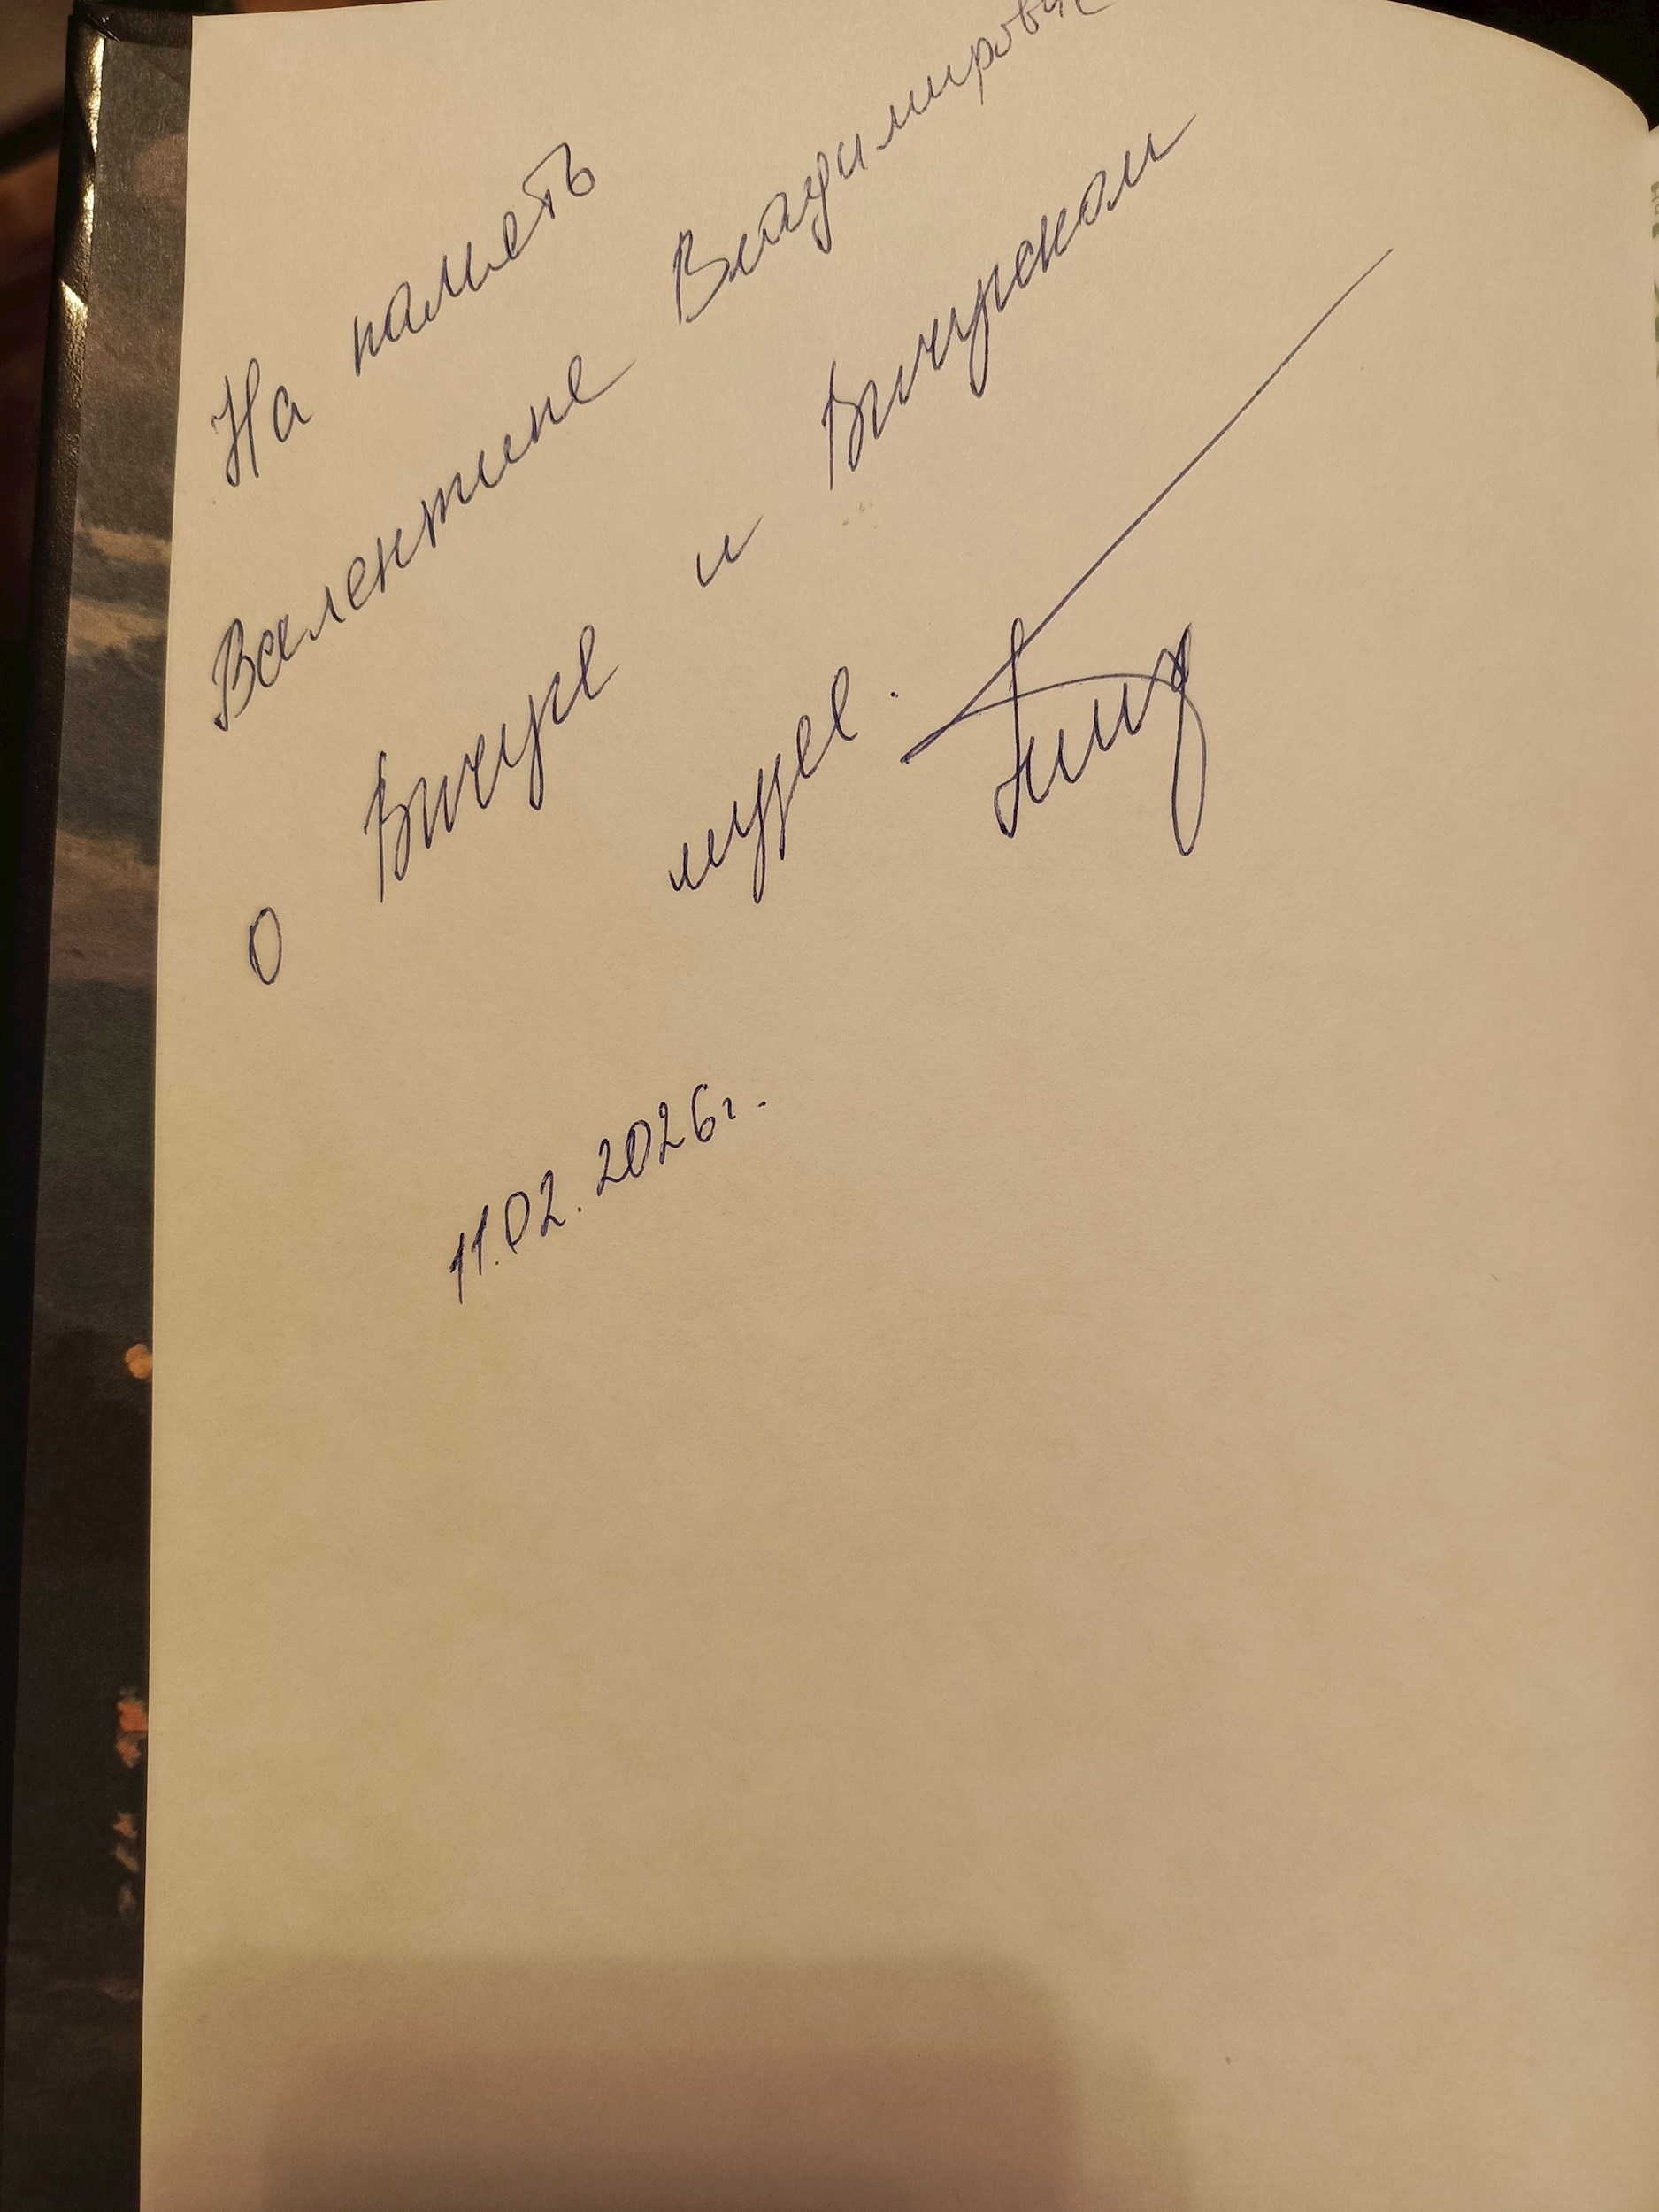 На память
Валентине Владимировне
о Вичуге и Вичугском
музее.
11.02.2026г.